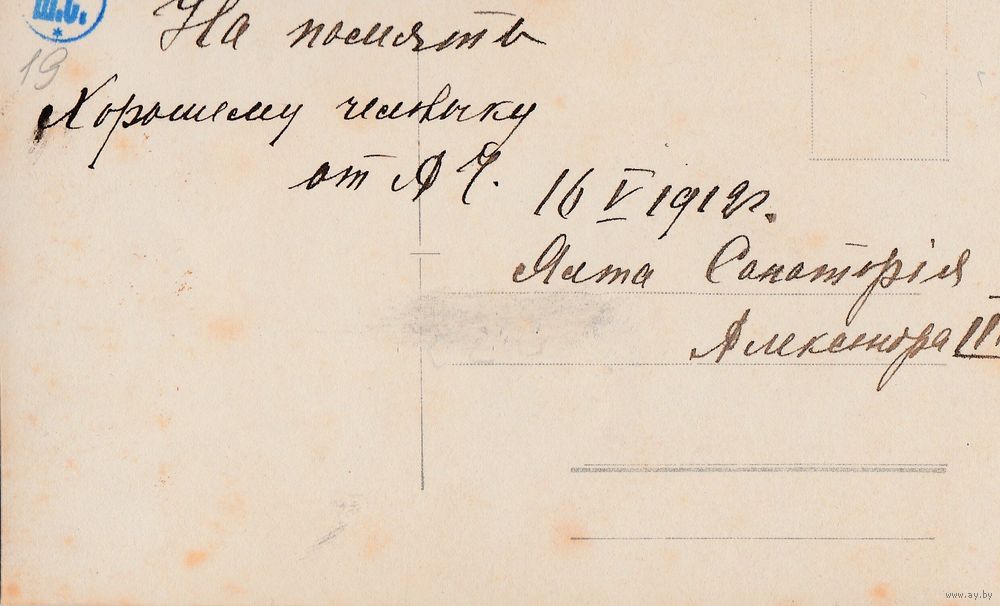 Ш.С.
*
19
На помять
Хорошему человѣку
от А Ч.
16 V 1912г.
Ялта Санаторія
Александра III
www.ay.by